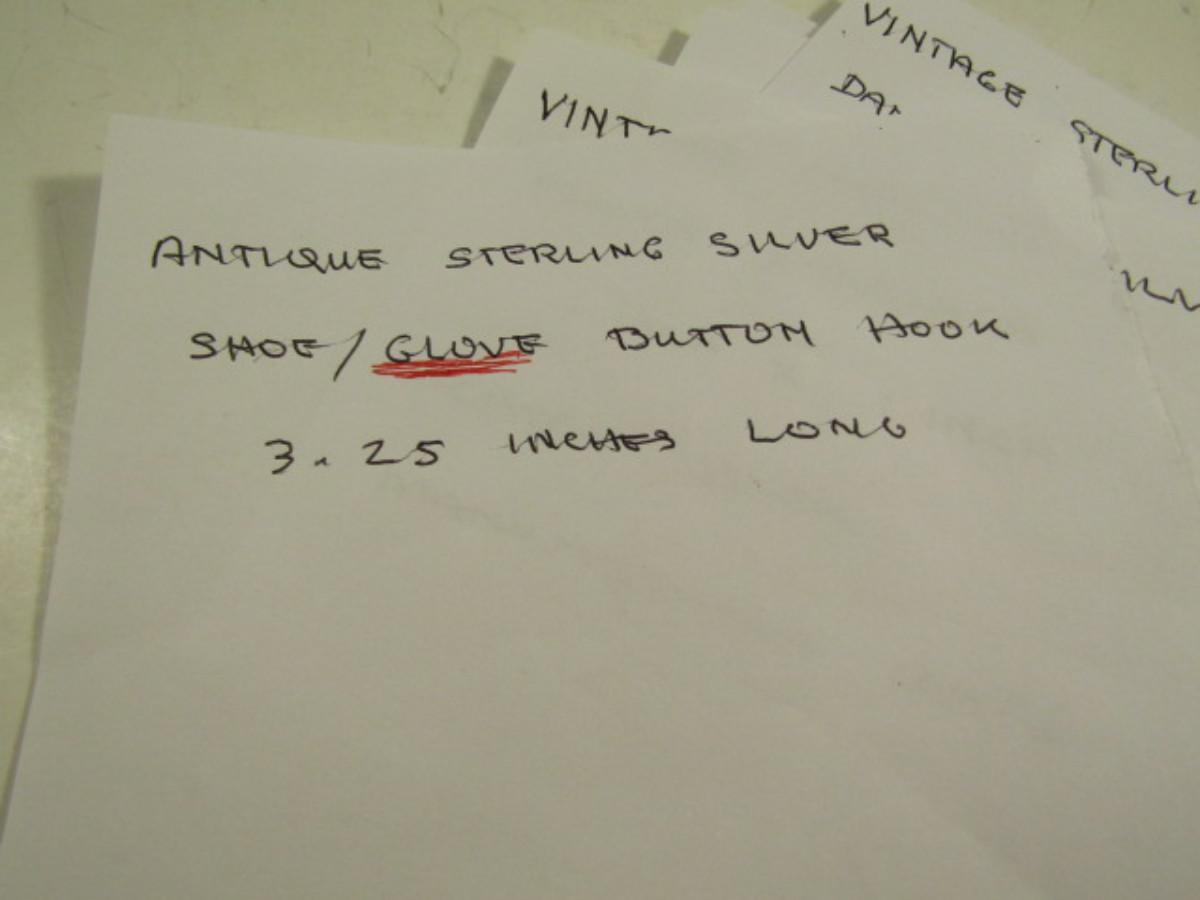 VINTAGE STERLI
DA
VINT
ANTIQUE STERLING SILVER
SHOE/GLOVE BUTTON HOOK
3.25 INCHES LONG